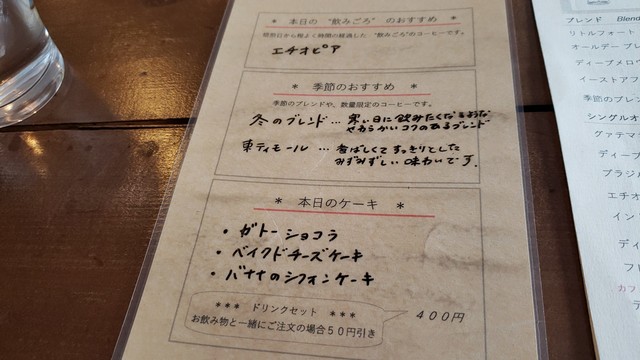 ＊ 本日の “飲みごろ” のおすすめ ＊
焙煎日から程よく時間の経過した “飲みごろ”のコーヒーです。
エチオピア
＊ 季節のおすすめ ＊
季節のブレンドや、数量限定のコーヒーです。
冬のブレンド … 寒い日に飲みたくなるような
やわらかいコクのあるブレンド
東ティモール … 香ばしくてすっきりとした
みずみずしい味わいです。
＊ 本日のケーキ ＊
・ガトーショコラ
・ベイクドチーズケーキ
・バナナのシフォンケーキ
＊＊＊ ドリンクセット ＊＊＊
お飲み物と一緒にご注文の場合５０円引き
４００円
ブレンド Blend
リトルフォート
オールデー ブレ
ディープメロウ
イーストア
季節のブレン
シングルオ
グァテマ
ディープ
ブラジル
エチオ
イン
ディ
フ
カフ
デ